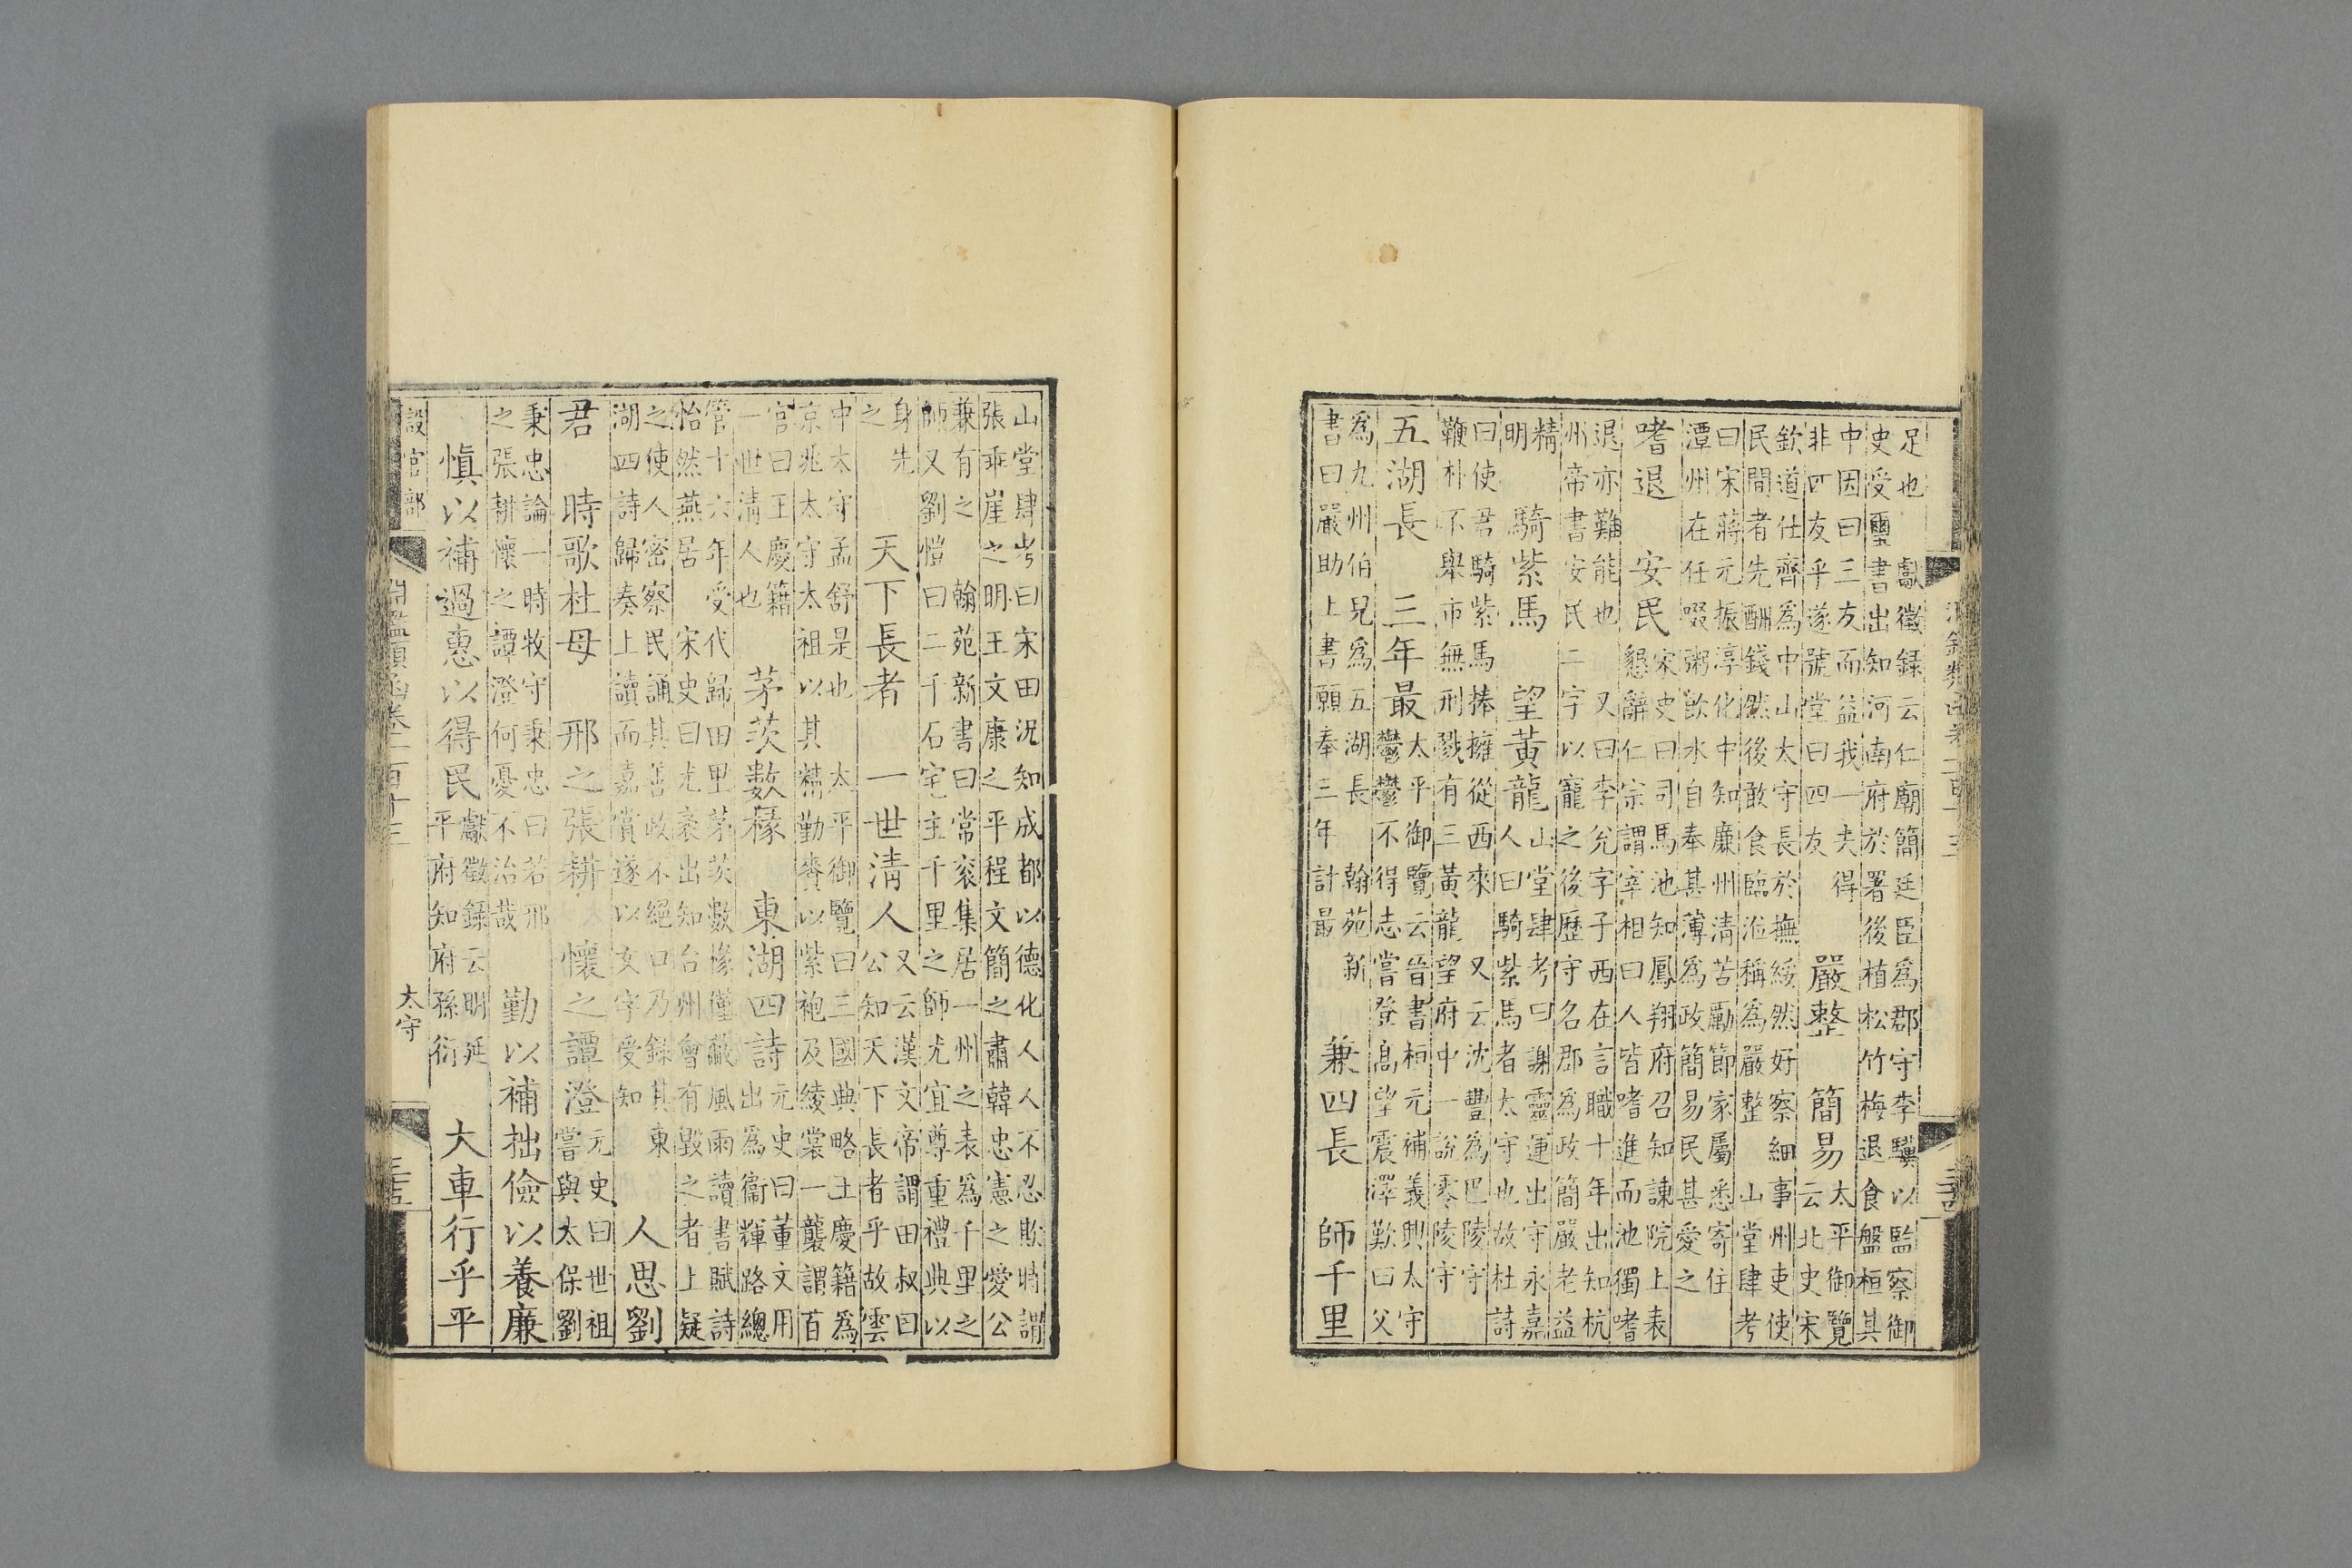 足也　獻徵録云仁廟簡廷臣為郡守李驥以監察御
史受璽書出知河南府於署後植松竹梅退食盤桓其
中因曰三友而益我一夫得
非四友乎遂號堂曰四友
嚴整　簡易
太平御覽
云北史宋
欽道仕齊為中山太守長於撫綏然好察細事州吏使
民間者先酬錢然後敢食臨涖稱為嚴整　山堂肆考
曰宋蔣元振淳化中知廉州清苦勵節家屬悉寄住
潭州在任啜粥飲水自奉甚薄為政簡易民甚愛之
嗜退　安民
宋史曰司馬池知鳳翔府召知諫院上表
懇辭仁宗謂宰相曰人皆嗜進而池獨嗜
退亦難能也　又曰李允字子西在言職十年出知杭
州帝書安民二字以寵之後歷守名郡為政簡嚴老益
精
明
騎紫馬　望黃龍
山堂肆考曰謝靈運出守永嘉
人曰騎紫馬者太守也故杜詩
曰使君騎紫馬捧擁從西來　又云沈豐為巴陵守
鞭朴不舉市無刑戮有三黃龍望府中一說零陵守
五湖長　三年最
太平御覽云晉書桓元補義興太守
鬱鬱不得志嘗登高望震澤歎曰父
為九州伯兒為五湖長　翰苑新
書曰嚴助上書願奉三年計最
兼四長　師千里
山堂肆考曰宋田況知成都以德化人人不忍欺時謂
張乖崖之明王文康之平程文簡之肅韓忠憲之愛公
兼有之　翰苑新書曰常衮集居一州之表為千里之
師又劉愷曰二千石宅主千里之師尤宜尊重禮典以
身先
之
天下長者　一世清人
又云漢文帝謂田叔曰
公知天下長者乎故雲
中太守孟舒是也　太平御覽曰三國典略王慶籍為
京兆太守太祖以其精勤賚以紫袍及綾裳一襲謂百
官曰王慶籍
一世清人也
茅茨數椽　東湖四詩
元史曰董文用
出為衞輝路總
管十六年受代歸田里茅茨數椽僅蔽風雨讀書賦詩
怡然燕居　宋史曰尤袤出知台州會有毀之者上疑
之使人密察民誦其善政不絕口乃錄其東
湖四詩歸奏上讀而嘉賞遂以文字受知
人思劉
君　時歌杜母　邢之張耕　懷之譚澄
元史曰世祖
嘗與太保劉
秉忠論一時牧守秉忠曰若邢
之張耕懷之譚澄何憂不治哉
勤以補拙儉以養廉
慎以補過惠以得民
獻徵錄云明延
平府知府孫衍
大車行乎平
設官部
淵鑑類函卷一百十三
太守